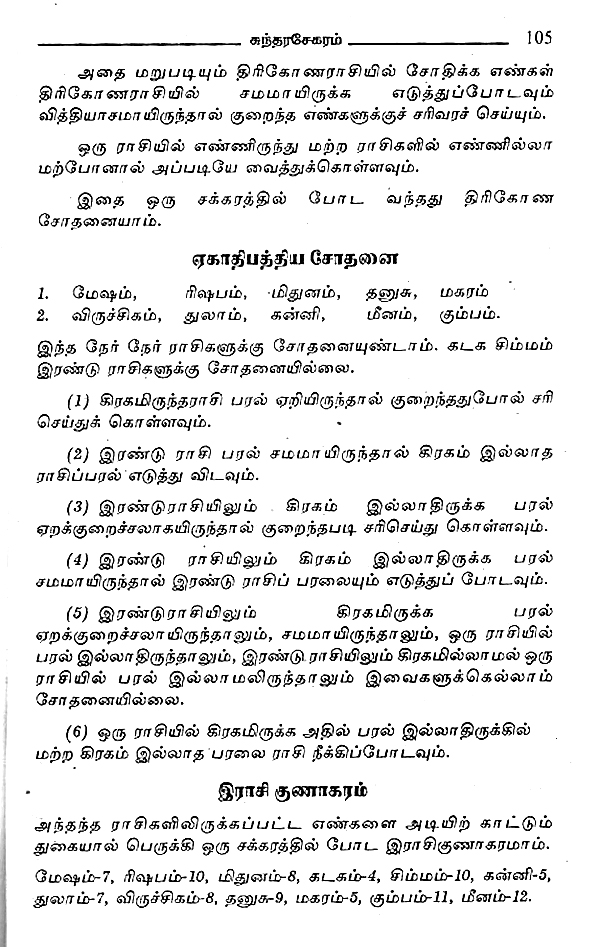 சுந்தரசேகரம் 105
அதை மறுபடியும் திரிகோணராசியில் சோதிக்க எண்கள்
திரிகோணராசியில் சமமாயிருக்க எடுத்துப்போடவும்
வித்தியாசமாயிருந்தால் குறைந்த எண்களுக்குச் சரிவரச் செய்யும்.
ஒரு ராசியில் எண்ணிருந்து மற்ற ராசிகளில் எண்ணில்லா
மற்போனால் அப்படியே வைத்துக்கொள்ளவும்.
இதை ஒரு சக்கரத்தில் போட வந்தது திரிகோண
சோதனையாம்.
ஏகாதிபத்திய சோதனை
1. மேஷம், ரிஷபம், மிதுனம், தனுசு, மகரம்
2. விருச்சிகம், துலாம், கன்னி, மீனம், கும்பம்.
இந்த நேர் நேர் ராசிகளுக்கு சோதனையுண்டாம். கடக சிம்மம்
இரண்டு ராசிகளுக்கு சோதனையில்லை.
(1) கிரகமிருந்தராசி பரல் ஏறியிருந்தால் குறைந்ததுபோல் சரி
செய்துக் கொள்ளவும்.
(2) இரண்டு ராசி பரல் சமமாயிருந்தால் கிரகம் இல்லாத
ராசிப்பரல் எடுத்து விடவும்.
(3) இரண்டுராசியிலும் கிரகம் இல்லாதிருக்க பரல்
ஏறக்குறைச்சலாகயிருந்தால் குறைந்தபடி சரிசெய்து கொள்ளவும்.
(4) இரண்டு ராசியிலும் கிரகம் இல்லாதிருக்க பரல்
சமமாயிருந்தால் இரண்டு ராசிப் பரலையும் எடுத்துப் போடவும்.
(5) இரண்டுராசியிலும் கிரகமிருக்க பரல்
ஏறக்குறைச்சலாயிருந்தாலும், சமமாயிருந்தாலும், ஒரு ராசியில்
பரல் இல்லாதிருந்தாலும், இரண்டு ராசியிலும் கிரகமில்லாமல் ஒரு
ராசியில் பரல் இல்லாமலிருந்தாலும் இவைகளுக்கெல்லாம்
சோதனையில்லை.
(6) ஒரு ராசியில் கிரகமிருக்க அதில் பரல் இல்லாதிருக்கில்
மற்ற கிரகம் இல்லாத பரலை ராசி நீக்கிப்போடவும்.
இராசி குணாகரம்
அந்தந்த ராசிகளிலிருக்கப்பட்ட எண்களை அடியிற் காட்டும்
துகையால் பெருக்கி ஒரு சக்கரத்தில் போட இராசிகுணாகரமாம்.
மேஷம்-7, ரிஷபம்-10, மிதுனம்-8, கடகம்-4, சிம்மம்-10, கன்னி-5,
துலாம்-7, விருச்சிகம்-8, தனுசு-9, மகரம்-5, கும்பம்-11, மீனம்-12.